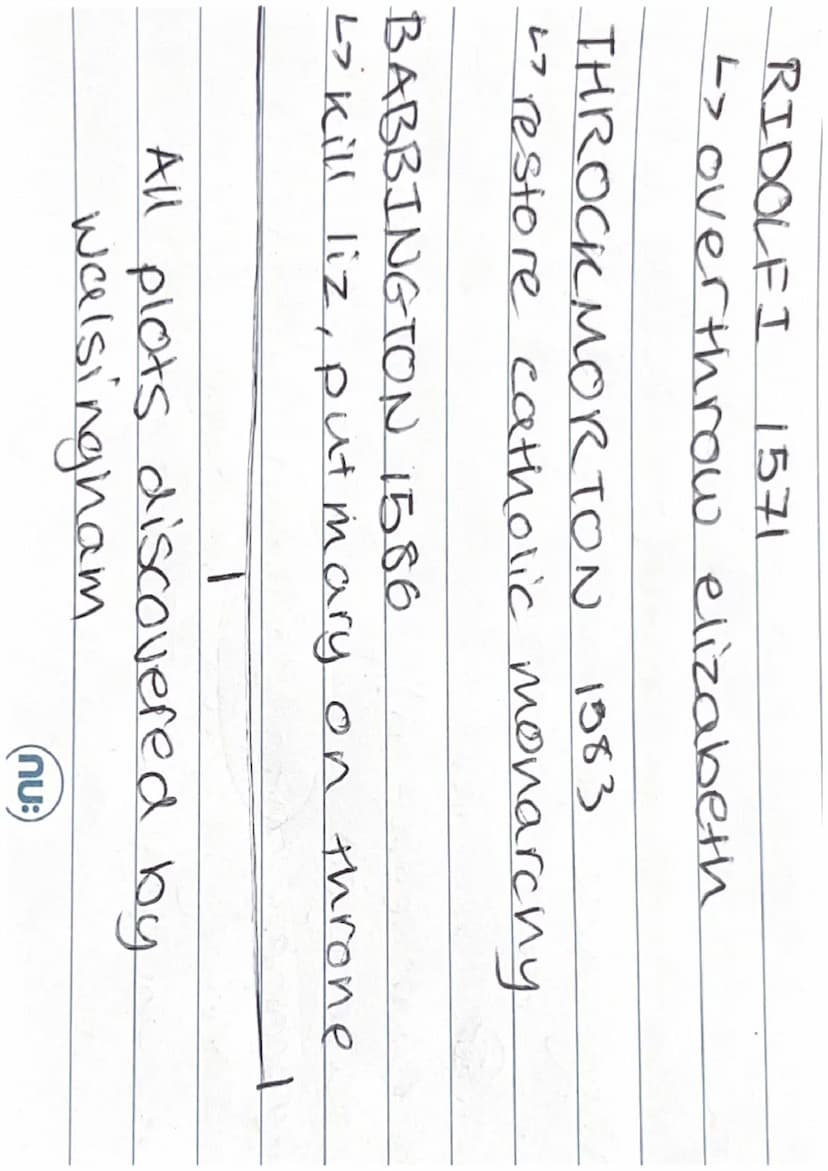 RIDOLFI 1571
↳ overthrow elizabeth
THROCKMORTON 1583
↳ restore catholic monarchy
BABBINGTON 1586
↳ kill liz, put mary on throne
All plots discovered by
walsingham
nu: